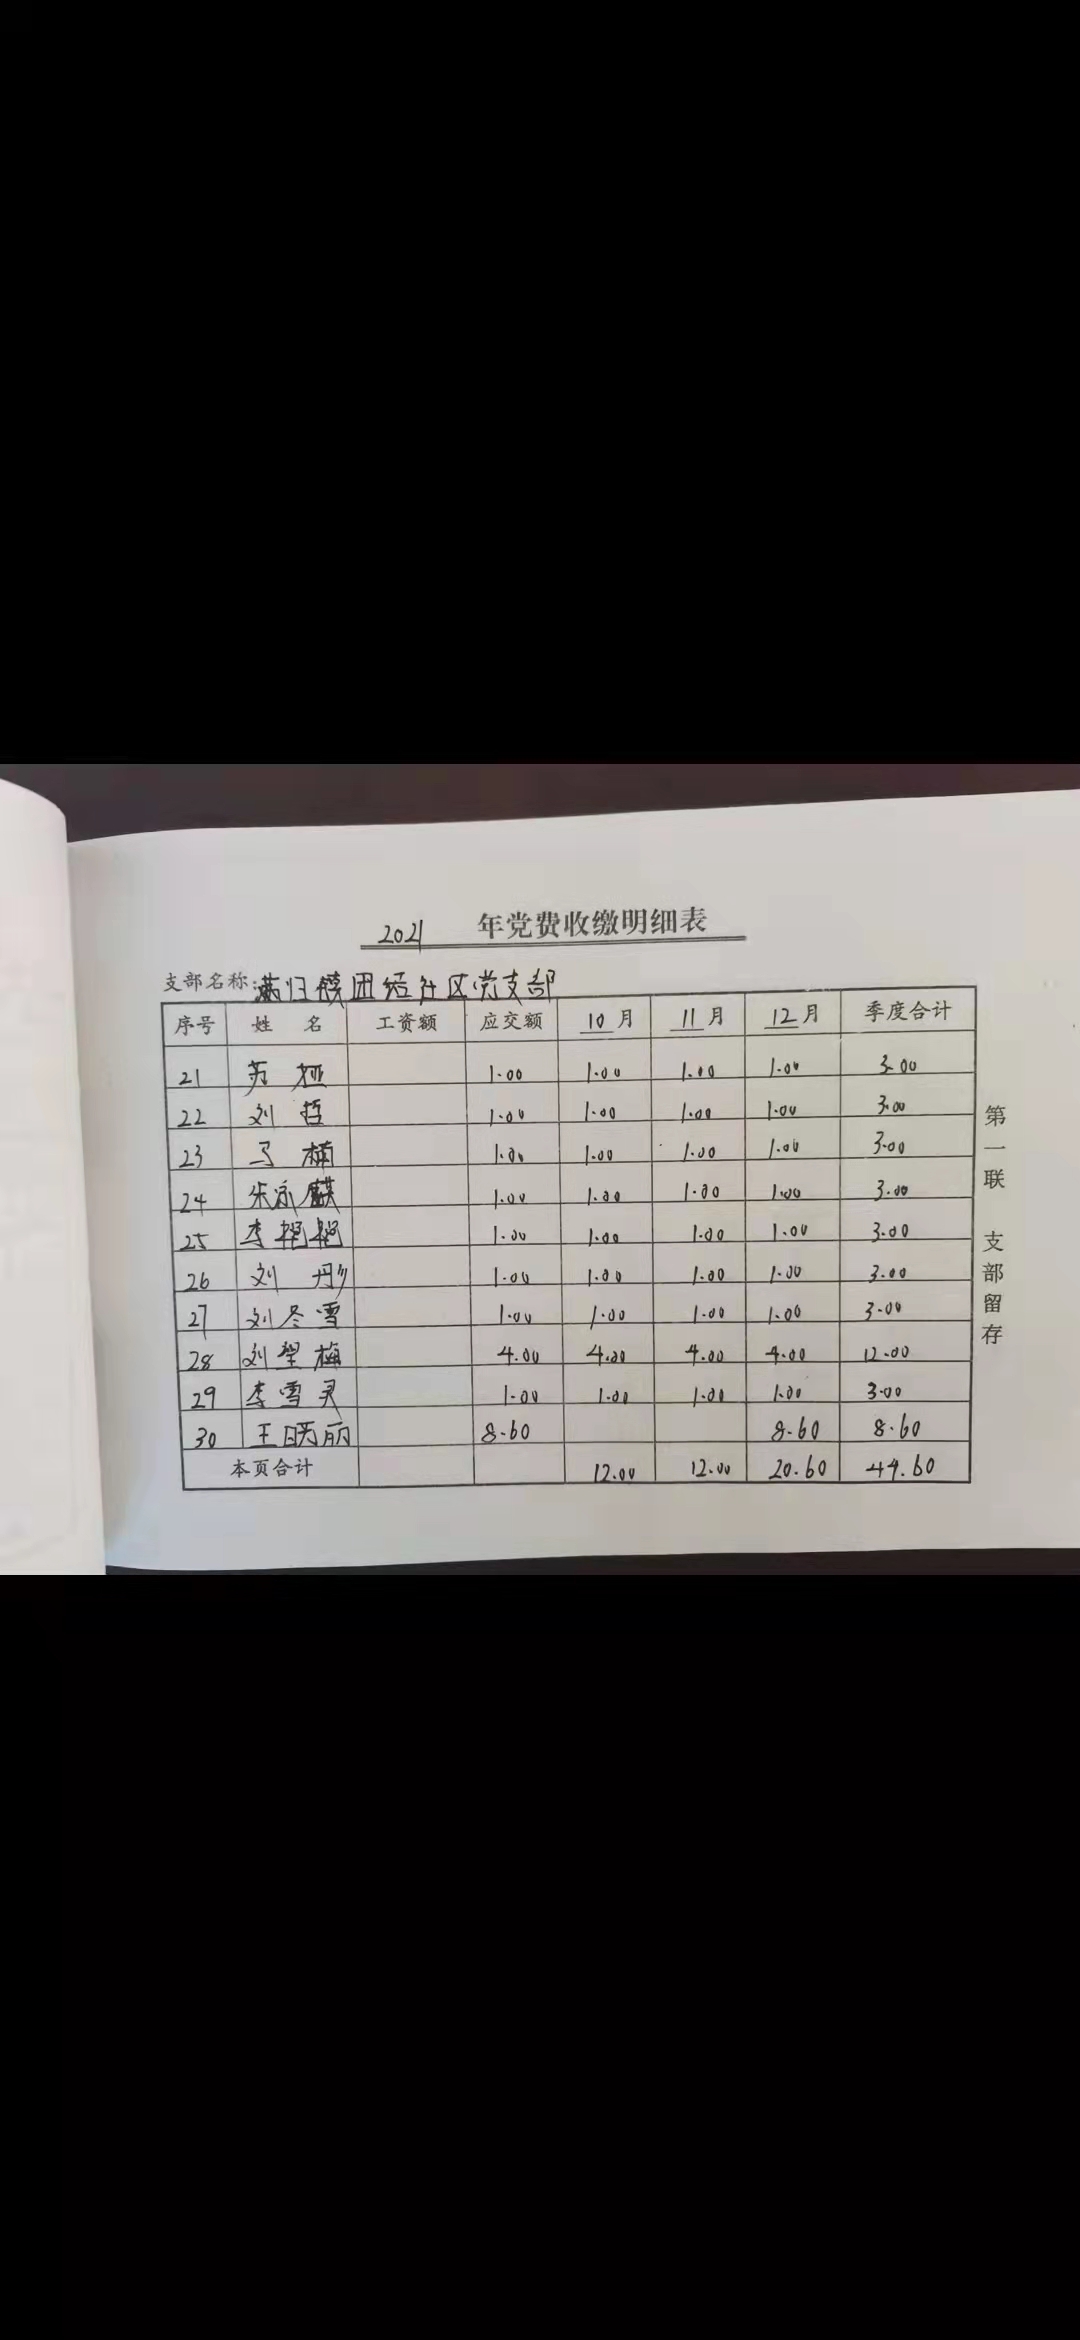 2021 年党费收缴明细表
支部名称:满归镇团结社区党支部
序号 姓 名 工资额 应交额 10月 11月 12月 季度合计
21 苏娅 1.00 1.00 1.00 1.00 3.00
22 刘哲 1.00 1.00 1.00 1.00 3.00
23 马楠 1.00 1.00 1.00 1.00 3.00
24 朱家麒 1.00 1.00 1.00 1.00 3.00
25 李艳艳 1.00 1.00 1.00 1.00 3.00
26 刘彤 1.00 1.00 1.00 1.00 3.00
27 刘冬雪 1.00 1.00 1.00 1.00 3.00
28 刘翠梅 4.00 4.00 4.00 4.00 12.00
29 李雪灵 1.00 1.00 1.00 1.00 3.00
30 王晓丽 8.60 8.60 8.60
本页合计 12.00 12.00 20.60 44.60
第一联 支部留存